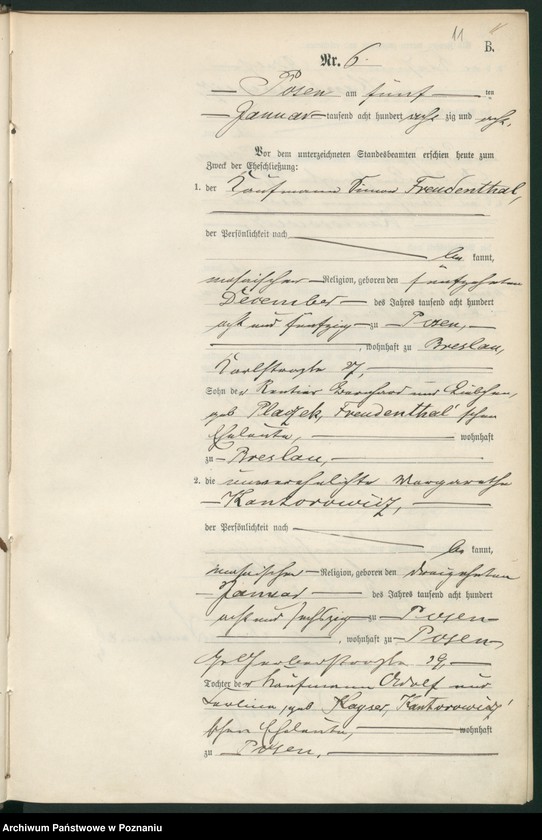 11
B.
Nr. 6.
Posen am fünf ten
Januar tausend acht hundert acht zig und acht.
Vor dem unterzeichneten Standesbeamten erschien heute zum
Zweck der Eheschließung:
1. der Kaufmann Simon Freudenthal,
der Persönlichkeit nach
be kannt,
mosaischer Religion, geboren den fünfzehnten
December des Jahres tausend acht hundert
acht und fünfzig zu Posen,
, wohnhaft zu Breslau,
Karlstraße 27,
Sohn der Rentier Bernhard und
geb. Placzek, Freudenthal'schen
Eheleute, wohnhaft
zu Breslau,
2. die unverehelichte Margarethe
Kantorowicz,
der Persönlichkeit nach
be kannt,
mosaischer Religion, geboren den dreizehnten
Januar des Jahres tausend acht hundert
acht und sechszig zu Posen
, wohnhaft zu Posen,
19,
Tochter der Kaufmann Adolf und
geb. Kayser, Kantorowicz'
schen Eheleute, wohnhaft
zu Posen,
Archiwum Państwowe w Poznaniu